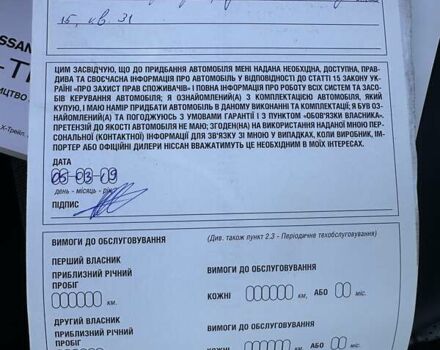 15 кв. 31
ISSAN
ЦИМ ЗАСВІДЧУЮ, ЩО ДО ПРИДБАННЯ АВТОМОБІЛЯ МЕНІ НАДАНА НЕОБХІДНА, ДОСТУПНА, ПРАВ-
ДИВА ТА СВОЄЧАСНА ІНФОРМАЦІЯ ПРО АВТОМОБІЛЬ У ВІДПОВІДНОСТІ ДО СТАТТІ 15 ЗАКОНУ УК-
РАЇНИ «ПРО ЗАХИСТ ПРАВ СПОЖИВАЧІВ» І ПОВНА ІНФОРМАЦІЯ ПРО РОБОТУ ВСІХ СИСТЕМ ТА ЗАСО-
БІВ КЕРУВАННЯ АВТОМОБІЛЯ; Я ОЗНАЙОМЛЕНИЙ(А) З КОМПЛЕКТАЦІЄЮ АВТОМОБІЛЯ, ЯКИЙ
КУПУЮ, І МАЮ НАМІР ПРИДБАТИ АВТОМОБІЛЬ В ДАНОМУ ВИКОНАННІ ТА КОМПЛЕКТАЦІЇ; Я БУВ ОЗ-
НАЙОМЛЕНИЙ(А) ТА ПОГОДЖУЮСЬ З УМОВАМИ ГАРАНТІЇ І З ПУНКТОМ «ОБОВ'ЯЗКИ ВЛАСНИКА».
ПРЕТЕНЗІЙ ДО ЯКОСТІ АВТОМОБІЛЯ НЕ МАЮ; ЗГОДЕН(НА) НА ВИКОРИСТАННЯ НАДАНОЇ МНОЮ ПЕР-
СОНАЛЬНОЇ (КОНТАКТНОЇ) ІНФОРМАЦІЇ ДЛЯ ЗВ'ЯЗКУ ЗІ МНОЮ У ВИПАДКАХ, КОЛИ ВИРОБНИК, ІМ-
ПОРТЕР АБО ОФІЦІЙНІ ДИЛЕРИ НІССАН ВВАЖАТИМУТЬ ЦЕ НЕОБХІДНИМ В МОЇХ ІНТЕРЕСАХ.
ДАТА
05-03-09
день - місяць - рік
ПІДПИС
ВИМОГИ ДО ОБСЛУГОВУВАННЯ (Див. також пункт 2.3 - Періодичне техобслуговування)
ПЕРШИЙ ВЛАСНИК
ПРИБЛИЗНИЙ РІЧНИЙ
ПРОБІГ
км. КОЖНІ км, АБО міс.
ДРУГИЙ ВЛАСНИК
ПРИБЛИЗНИЙ РІЧНИЙ
ПРОБІГ КОЖНІ км, АБО міс.